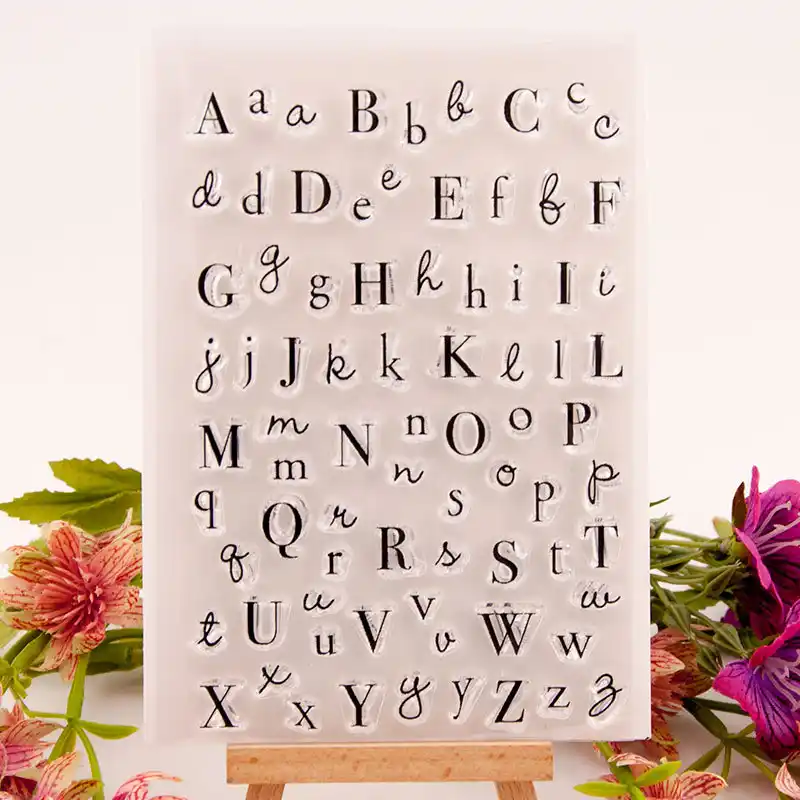 A a a B b b C c c
d d D e e E f f F
G g g H h h i I i
j j J k k K l l L
M m m N n n O o o P
q q Q r r R s s S p p t T
t U u u V v v W w w
X x x Y y y Z z z